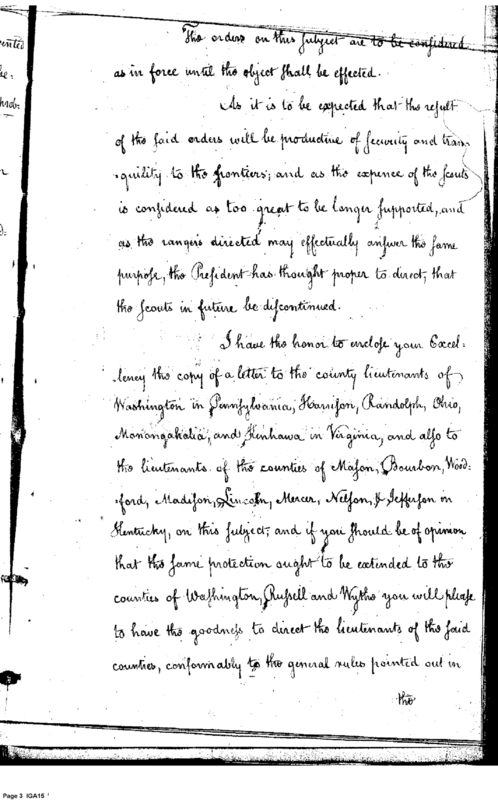 The orders on this subject are to be considered
as in force until the object shall be effected.
As it is to be expected that the result
of the said orders will be productive of security and tran-
-quility to the frontiers; and as the expence of the scouts
is considered as too great to be longer supported, and
as the rangers directed may effectually answer the same
purpose, the President has thought proper to direct, that
the scouts in future be discontinued.
I have the honor to enclose your Excel:
:lency the copy of a letter to the county lieutenants of
Washington in Pennsylvania, Harrison, Randolph, Ohio,
Monongahalia, and Kenhawa in Virginia, and also to
the lieutenants of the counties of Mason, Bourbon, Wood:
:ford, Madison, Lincoln, Mercer, Nelson, & Jefferson in
Kentucky, on this subject, and if you should be of opinion
that the same protection ought to be extended to the
counties of Washington, Russell and Wythe you will please
to have the goodness to direct the lieutenants of the said
counties, conformably to the general rules pointed out in
the
Page 3 IGA15